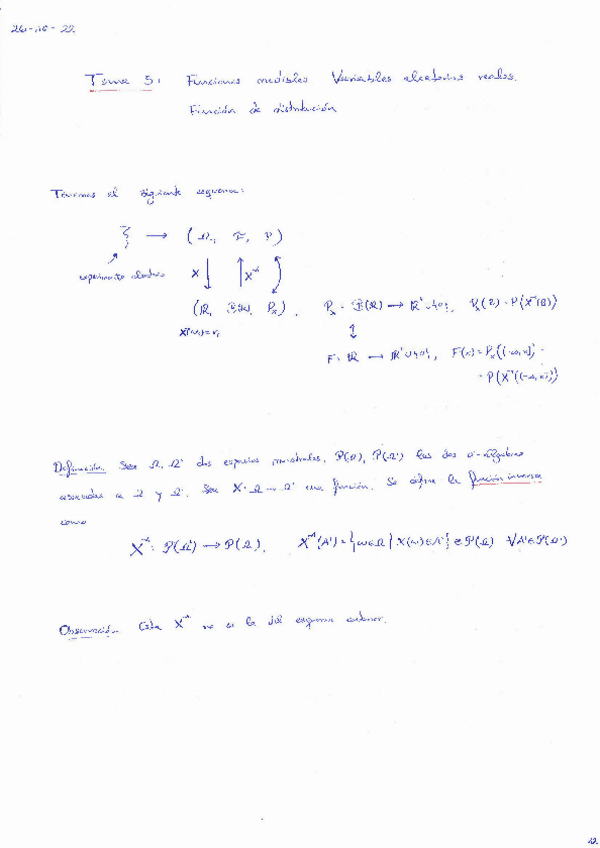 26-10-22
Tema 5: Funciones medibles Variables aleatorias reales.
Función de distribución
Tenemos el siguiente esquema:
ξ → (Ω, F, P)
experimento aleatorio X ↓ ↑ X⁻¹
(ℝ, B(ℝ), Pₓ). Pₓ: B(ℝ) → ℝ⁺∪{0}, Pₓ(B) = P(X⁻¹(B))
X(ωᵢ)=rᵢ
F: ℝ → ℝ⁺∪{0}, F(x) = Pₓ((-∞,x]) =
= P(X⁻¹((-∞,x]))
Definición. Sean Ω, Ω' dos espacios muestrales, P(Ω), P(Ω') las dos σ-álgebras
asociadas a Ω y Ω'. Sea X: Ω → Ω' una función. Se define la función inversa
como
X⁻¹: P(Ω') → P(Ω), X⁻¹(A') = {ω∈Ω | X(ω)∈A'} ∈ P(Ω) ∀A'∈P(Ω')
Observación. Esta X⁻¹ no es la del esquema anterior.